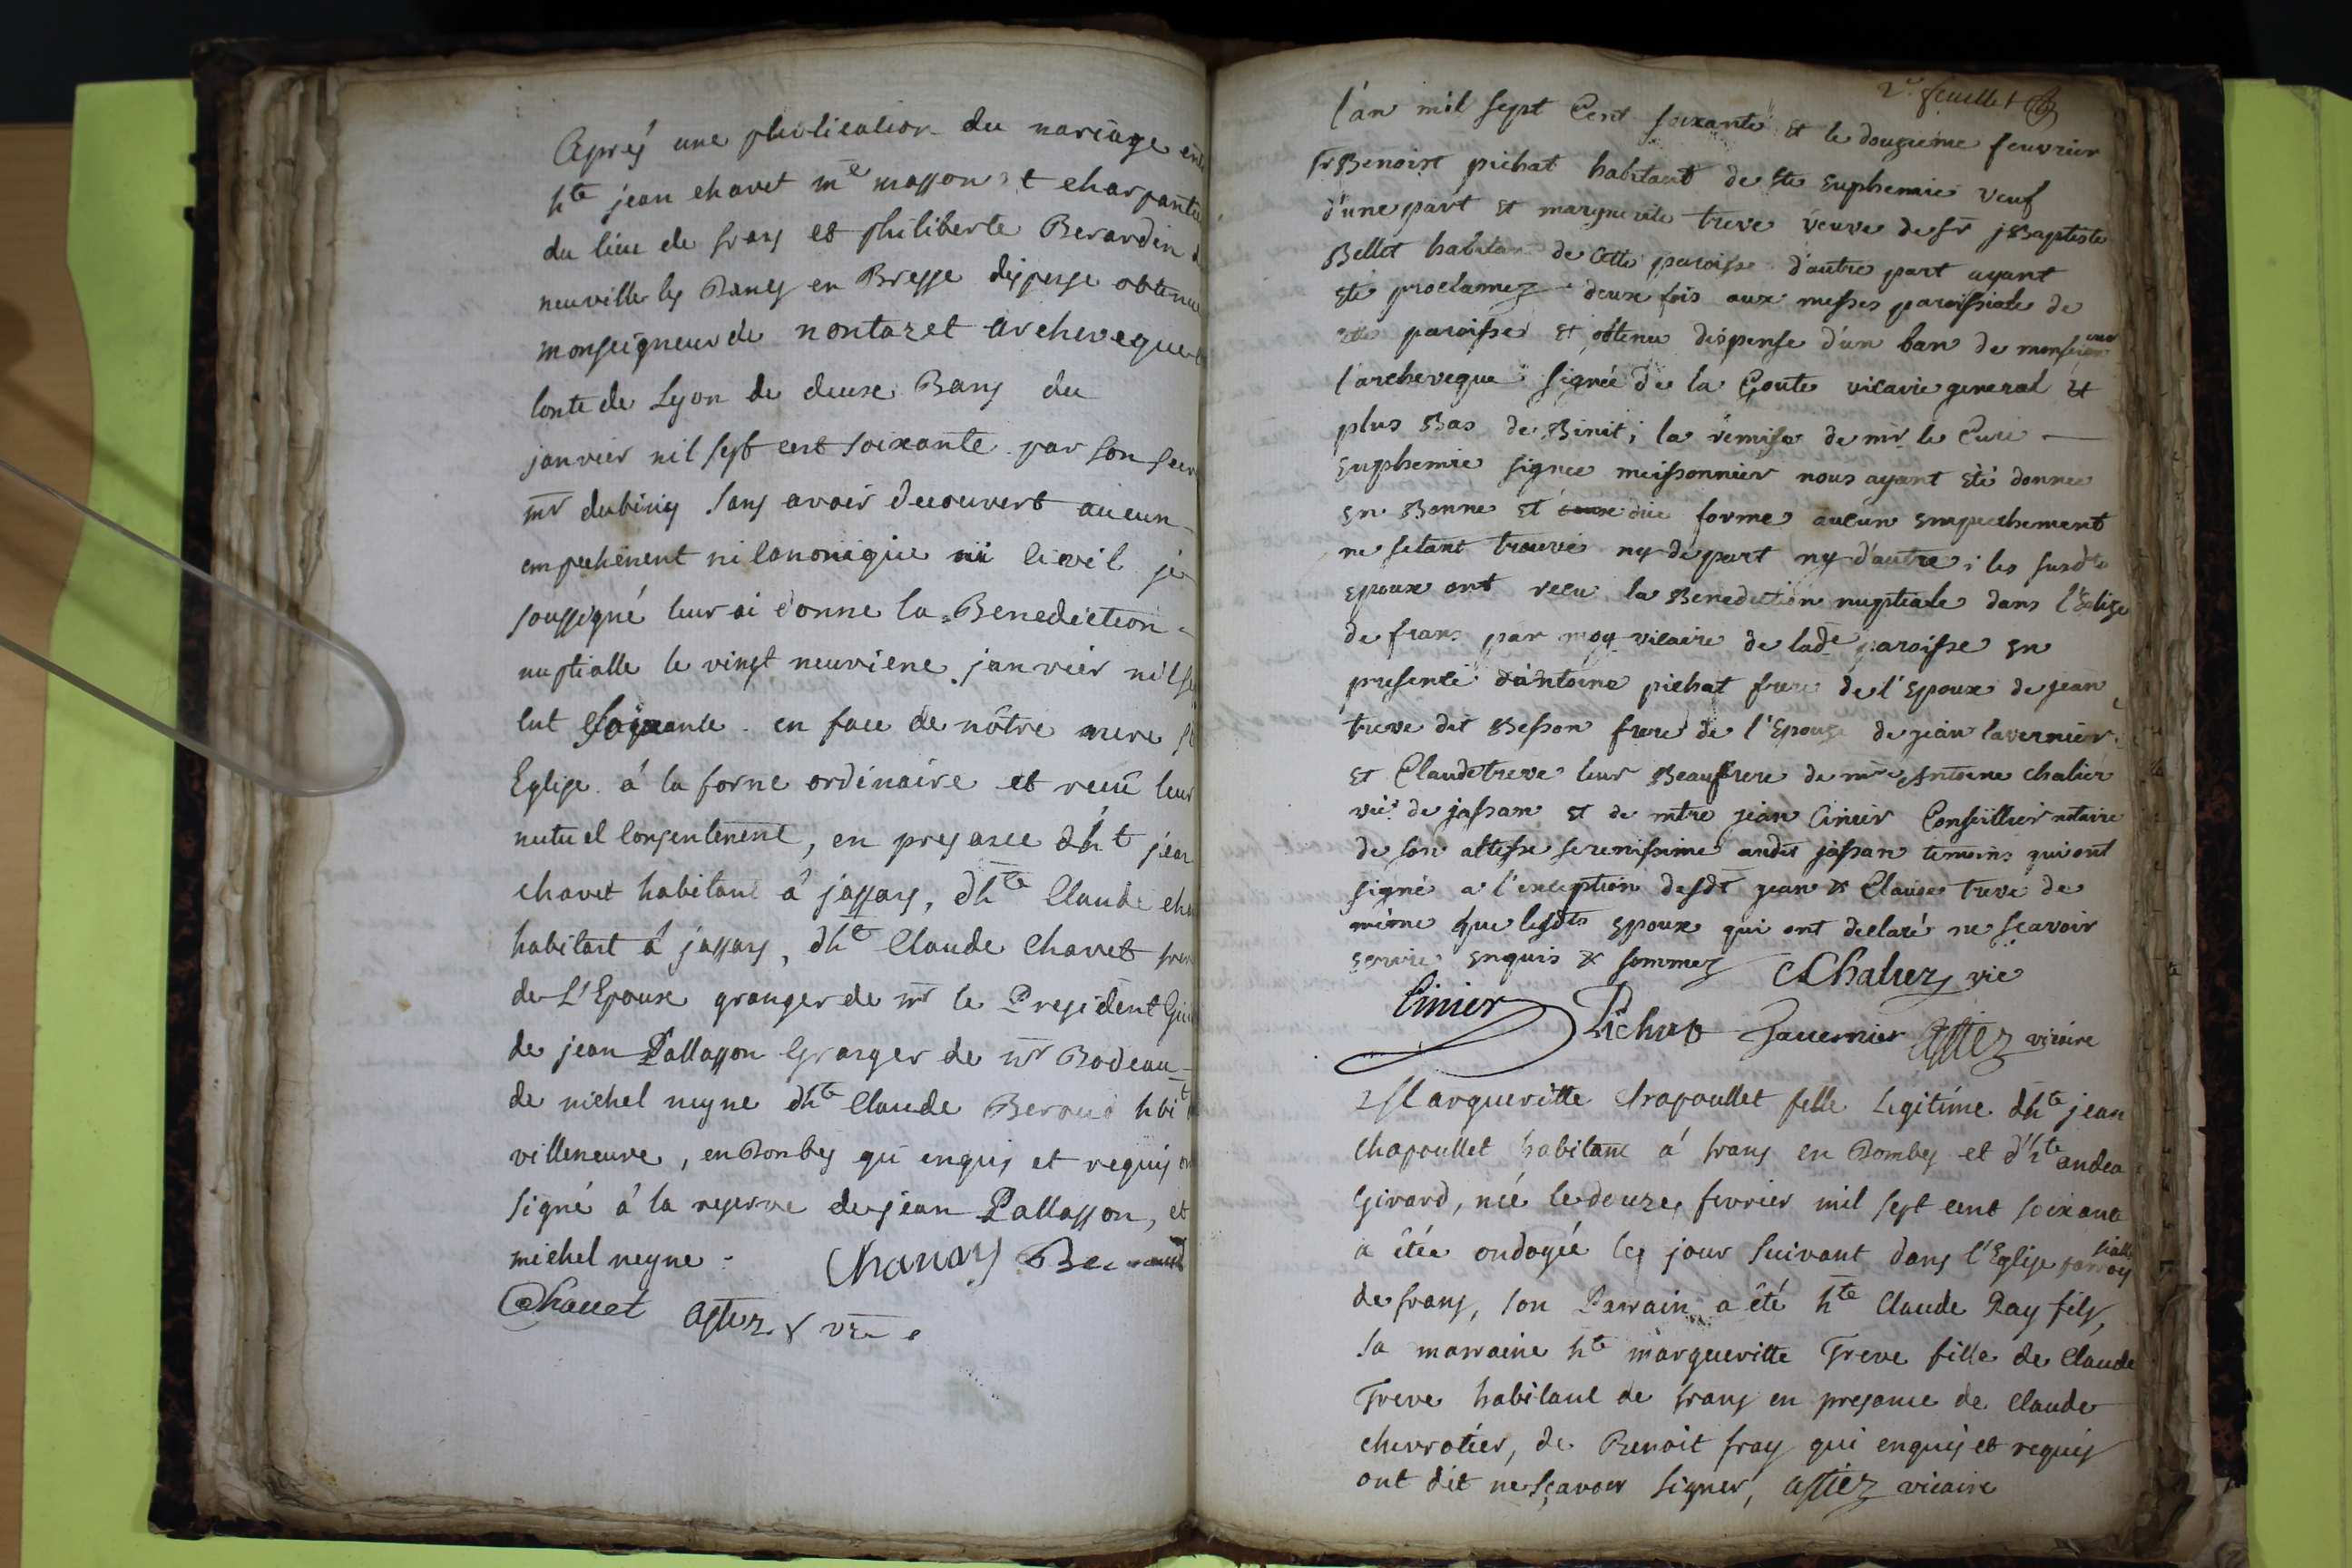 Aprés une publication du mariage entre
hte jean chavet me masson et charpantie
du lieu de frans et philiberte Berardin
neuville les Dames en Bresse dispense obtenue
monseigneur de montazet archeveque
conte de Lyon de deux Bans du
janvier mil sept cent soixante par son
mr dubinis sans avoir decouvert aucun
empechement ni canonique ni civil je
soussigné leur ai donne la Benediction
nuptialle le vingt neuvieme janvier mil
cent soixante en face de nôtre mere
Eglise á la forme ordinaire et recu leur
mutuel consentement, en presance dht jean
chavet habitant á jassans, dhte Claude
habitant á jassans, dhte Claude Chavet
de L'Epoux granger de mr le President
de jean Pallasson Granger de mr Bodeau
de michel neyne dhte Claude Beraud hbit
villeneuve, en Dombes qui enquis et requis
signé á la reserve de jean Pallasson, et
michel neyne. Chanay Beraud
Chauet astiez vre
2e feuillet
l'an mil sept Cent soixante et le douzieme feuvrier
sr Benoist pichat habitant de ste Euphemie veuf
d'une part et marguerite treve veuve de sr j Baptiste
Bellet habitan de Cette paroisse d'autre part ayant
eté proclamez deux fois aux messes paroissiale de
cette paroisse et obtenu dispense d'un ban de monseigneur
l'archeveque signée de la Goute vicaire general et
plus Bas de Binit; la remise de mr le Curé
Euphemie signee meissonnier nous ayant eté donnee
en Bonne et due forme aucun empechement
ne setant trouvé ny de part ny d'autre; les susdts
epoux ont recu la Benediction nuptiale dans l'Eglise
de frans par moy vicaire de lade paroisse en
presence d'antoine pichat frere de l'Epoux de jean
treve dit Besson frere de l'Epouse de jean lavernier
et Claude treve leur Beaufrere de mre Antoine chalier
vic. de jassan et de mtre jean Cinier Conseiller notaire
de son altesse serenissime audit jassan temoins qui ont
signé a l'exception desdt jean & Claude treve de
même que lesdts epoux qui ont declaré ne scavoir
ecrire enquis & sommez Chaliez vic
Cinier Pichat Lauernier Astiez vicaire
Marguerite Chapoullet fille Legitime dhte jean
Chapoullet habitant á frans en Dombes et d'hte andrea
Girard, née le douze fevrier mil sept cent soixante
a étée ondoyée les jour suivant dans l'Eglise parroissialle
de frans, son Parrain a été hte Claude Ray fils,
sa marraine hte marguerite Treve fille de Claude
Treve habitant de frans en presance de Claude
chevrotier, de Benoit fray qui enquis et requis
ont dit ne sçavoir signer, astiez vicaire